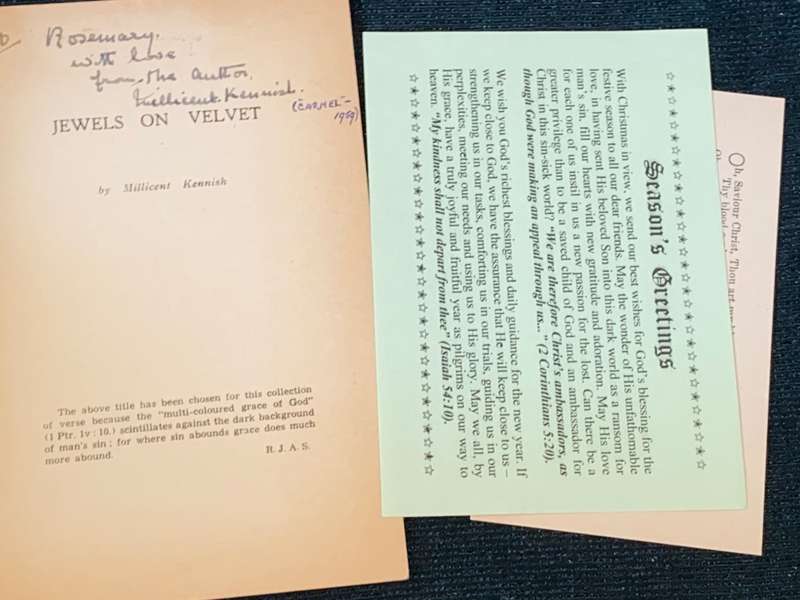 Rosemary.
with love
from the Author,
Millicent Kennish.
(CARMEL -
1959)
JEWELS ON VELVET
by Millicent Kennish
The above title has been chosen for this collection
of verse because the "multi-coloured grace of God"
(1 Ptr. 1v : 10.) scintillates against the dark background
of man's sin ; for where sin abounds grace does much
more abound.
R. J. A. S.
Season's Greetings
With Christmas in view, we send our best wishes for God's blessing for the
festive season to all our dear friends. May the wonder of His unfathomable
love, in having sent His beloved Son into this dark world as a ransom for
man's sin, fill our hearts with new gratitude and adoration. May His love
for each one of us instil in us a new passion for the lost. Can there be a
greater privilege than to be a saved child of God and an ambassador for
Christ in this sin-sick world? "We are therefore Christ's ambassadors, as
though God were making an appeal through us..." (2 Corinthians 5:20).
We wish you God's richest blessings and daily guidance for the new year. If
we keep close to God, we have the assurance that He will keep close to us –
strengthening us in our tasks, comforting us in our trials, guiding us in our
perplexities, meeting our needs and using us to His glory. May we all, by
His grace, have a truly joyful and fruitful year as pilgrims on our way to
heaven. "My kindness shall not depart from thee" (Isaiah 54:10).
Oh, Saviour Christ, Thou art my
Thy blood